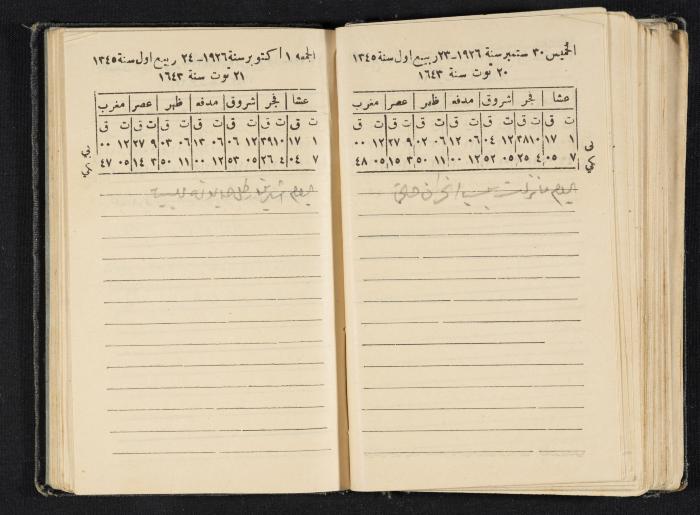 الخميس ٣٠ ستمبر سنة ١٩٢٦ - ٢٣ ربيع اول سنة ١٣٤٥
٢٠ توت سنة ١٦٤٣
عشا فجر شروق مدفه ظهر عصر مغرب
ت ق ت ق ت ق ت ق ت ق ت ق ت ق
١ ١٧ ١٠ ٣٨ ١٢ ٠٤ ٠٦ ١٢ ٠٦ ٠٢ ٩ ٢٧ ١٢ ٠٠
٧ ٠٥ ٤ ٢٥ ٠٥ ٥٢ ١٢ ٠٠ ١١ ٥٠ ٣ ١٥ ٠٥ ٤٨
اليوم
الجمعه ١ اكتوبر سنة ١٩٢٦ - ٢٤ ربيع اول سنة ١٣٤٥
٢١ توت سنة ١٦٤٣
عشا فجر شروق مدفه ظهر عصر مغرب
ت ق ت ق ت ق ت ق ت ق ت ق ت ق
١ ١٧ ١٠ ٣٩ ١٢ ٠٦ ٠٦ ١٣ ٠٦ ٠٣ ٩ ٢٧ ١٢ ٠٠
٧ ٠٤ ٤ ٢٦ ٠٥ ٥٣ ١٢ ٠٠ ١١ ٥٠ ٣ ١٤ ٠٥ ٤٧
اليوم